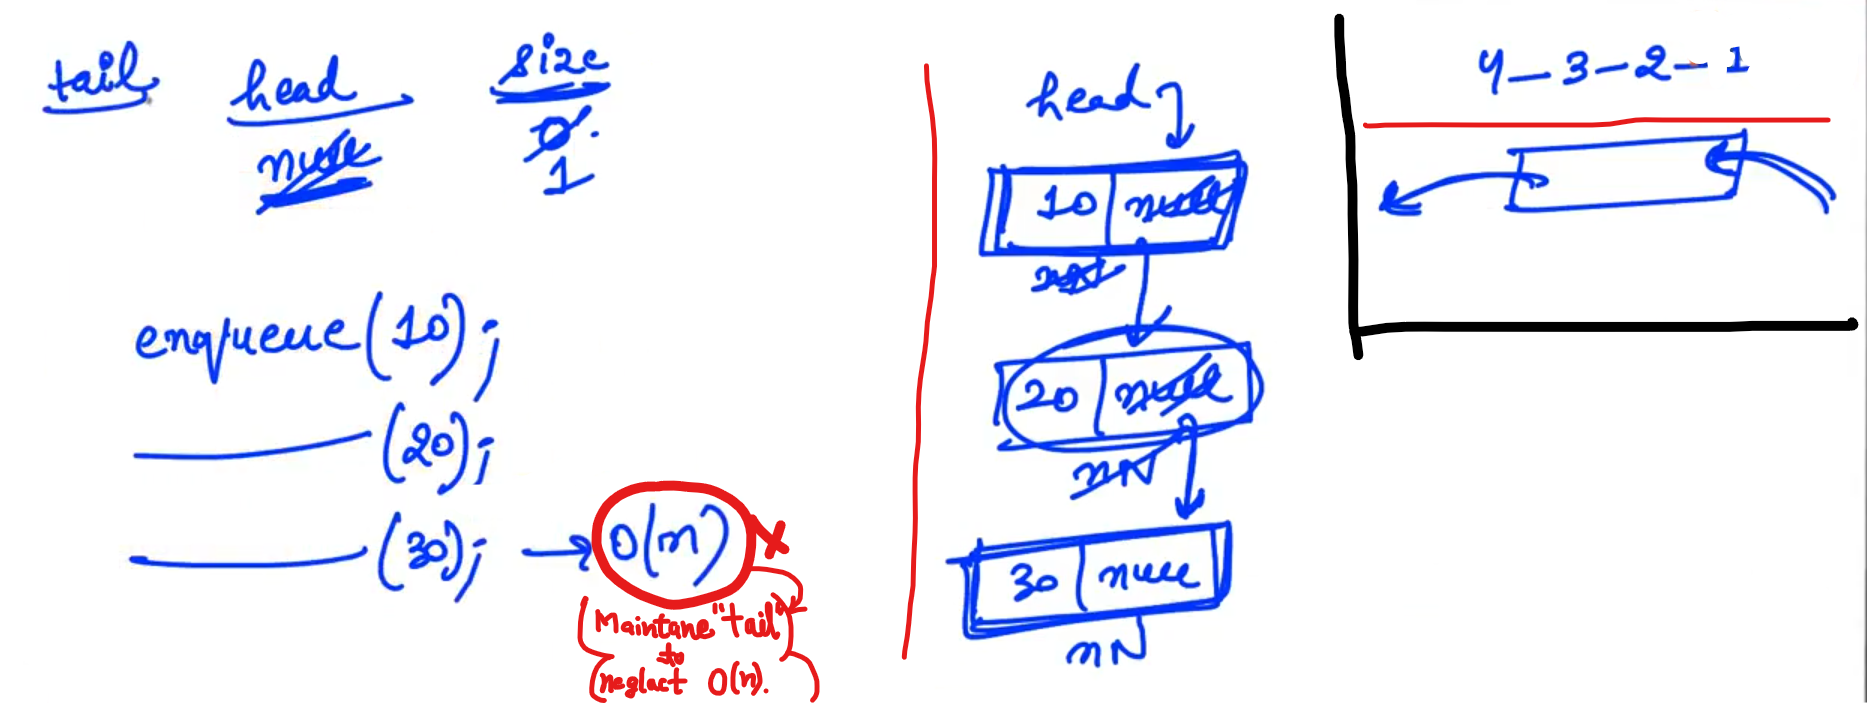 tail head size
null 0.
1
enqueue(10);
(20);
(30); → O(n) x
(Maintane "tail"
to
neglact O(n).)
head
10 null
nN
20 null
nN
30 null
nN
4-3-2-1